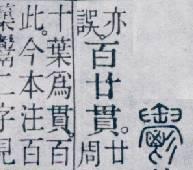 亦
誤。
百廿貫。
廿
周
十葉爲貫。百
此。今本注百
二字見